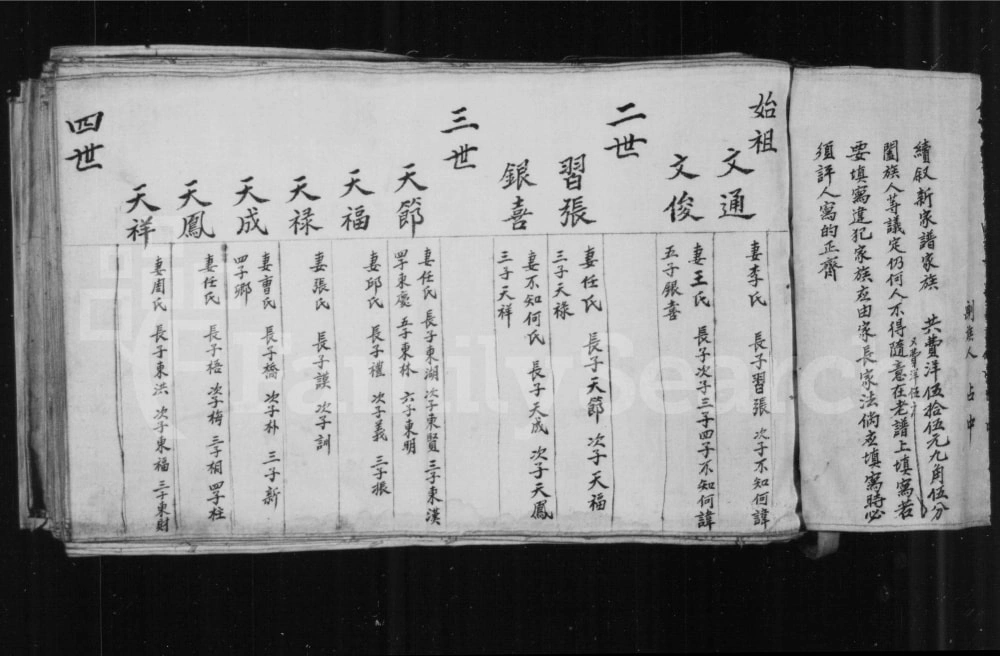 續叙新家譜家族 共費洋伍拾伍元九角伍分
闔族人等議定仍何人不得隨意在老譜上填寫若
要填寫違犯家族应由家長家法倘应填寫時必
須評人寫的正齊
始祖
文通 妻李氏 長子習張 次子不知何諱
文俊 妻王氏 長子次子三子四子不知何諱
五子銀喜
二世
習張 妻任氏 長子天節 次子天福
三子天禄
銀喜 妻不知何氏 長子天成 次子天鳳
三子天祥
三世
天節 妻任氏 長子東湖 次子東賢 三子東漢
四子東慶 五子東林 六子東明
天福 妻邱氏 長子禮 次子義 三子振
天禄 妻張氏 長子謨 次子訓
天成 妻曹氏 長子橋 次子朴 三子新
四子鄉
天鳳 妻任氏 長子梧 次子梅 三子桐 四子柱
天祥 妻周氏 長子東洪 次子東福 三子東財
四世
FamilySearch